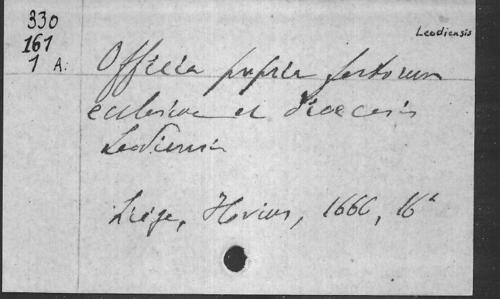 330
161
1 A:
Leodiensis
Officia propria festorum
ecclesiae et dioecesis
Leodiensis
Liège, Hovius, 1666, 16°